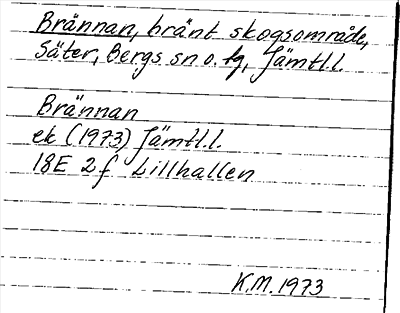 Brännan, bränt skogsområde,
Säter, Bergs sn o. tg, Jämtl.l.
Brännan
ek (1973) Jämtl.l.
18E 2f Lillhallen
K.M. 1973